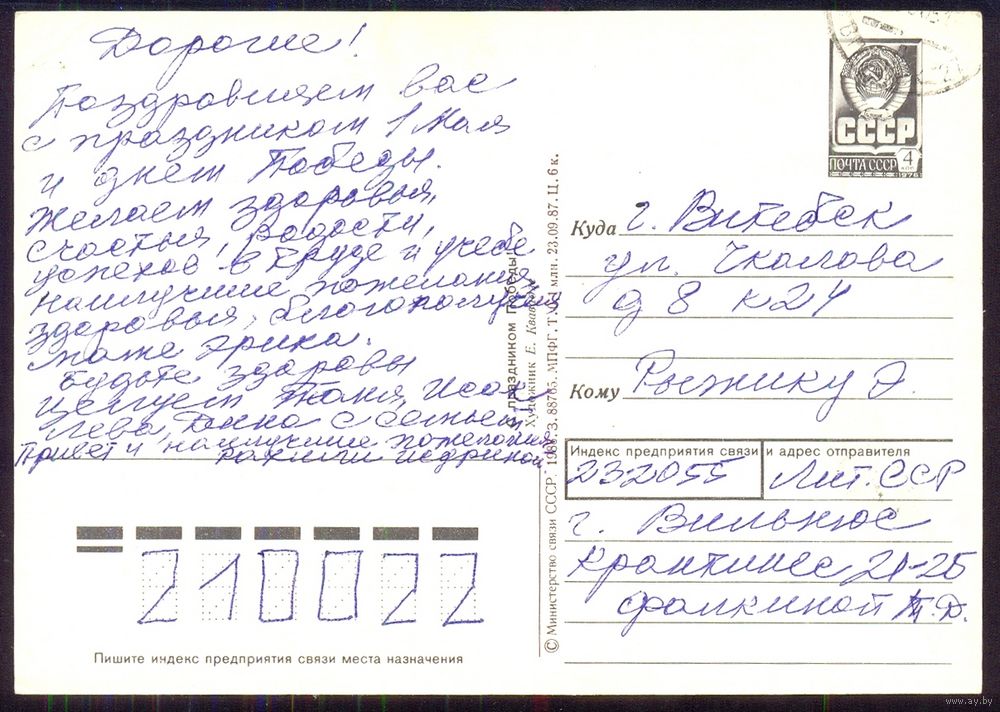 Дорогие!
Поздравляем вас
с праздником 1 Мая
и днем Победы.
Желаем здоровья,
счастья, радости,
успехов в труде и учебе
Наилучшие пожелания
здоровья, благополучия
Будьте здоровы
целуем Таня, Исаак
Лева, Дина с семьей
Привет и наилучшие пожелания
С праздником Победы!
Художник Е. Квавадзе
© Министерство связи СССР. 1988. З. 88765. МПФГ. Т. млн. 23.09.87. Ц. 6 к.
СССР
ПОЧТА СССР 4
1976
Куда г. Витебск
ул. Чкалова
д 8 к 24
Кому Рыжику Э.
Индекс предприятия связи и адрес отправителя
232055 Лит. ССР
г. Вильнюс
Крантинес 21-25
Фалкиной Т.Д.
210022
Пишите индекс предприятия связи места назначения
www.ay.by